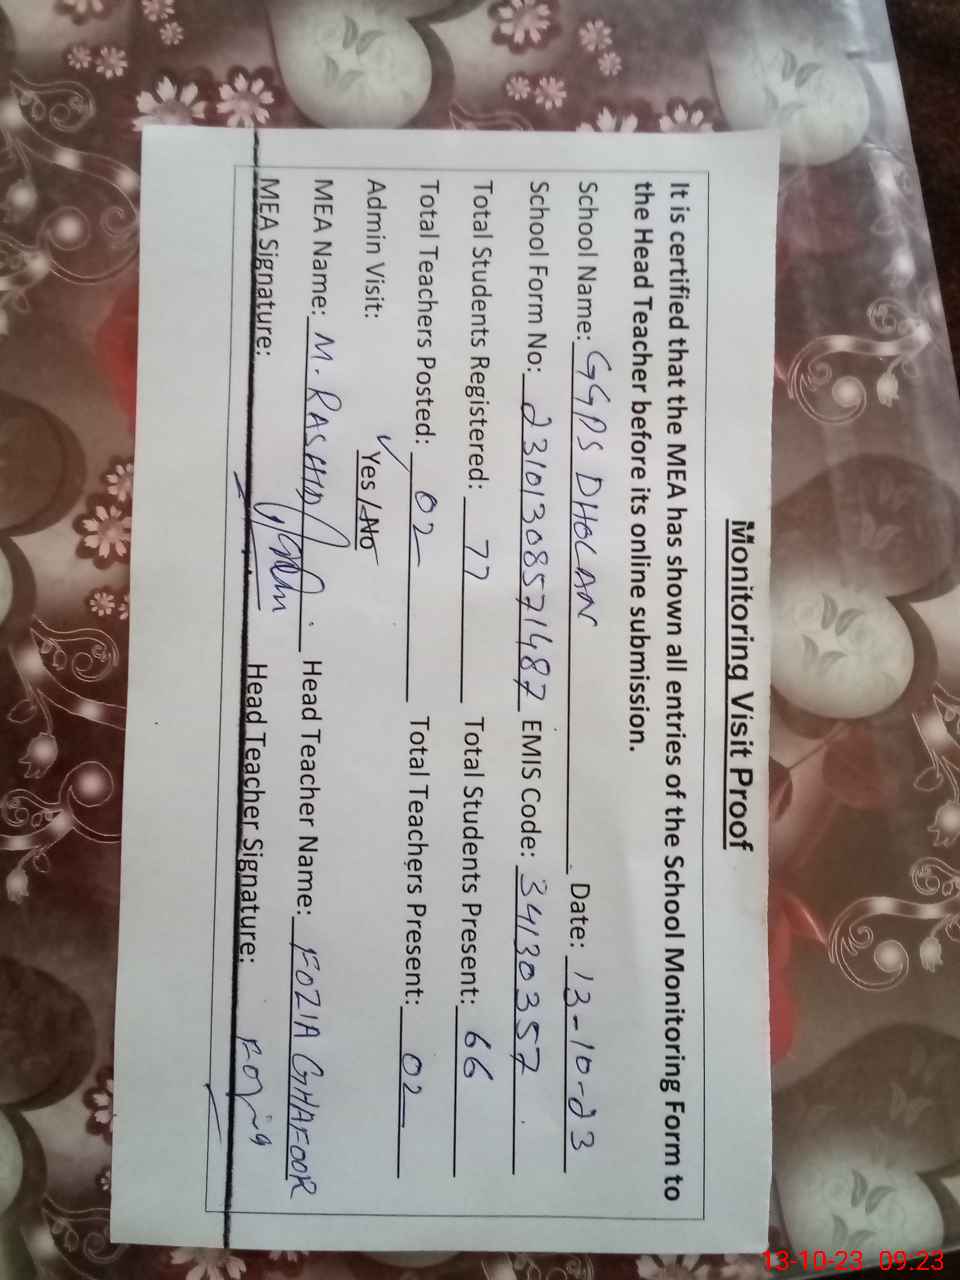 Monitoring Visit Proof
It is certified that the MEA has shown all entries of the School Monitoring Form to
the Head Teacher before its online submission.
School Name: GGPS DHOLAN Date: 13-10-23
School Form No: 23101308571487 EMIS Code: 34130357
Total Students Registered: 77 Total Students Present: 66
Total Teachers Posted: 02 Total Teachers Present: 02
Admin Visit: ✓ Yes / No
MEA Name: M. RASHID Head Teacher Name: FOZIA GHAFOOR
MEA Signature: Head Teacher Signature: Fozia
13-10-23 09:23